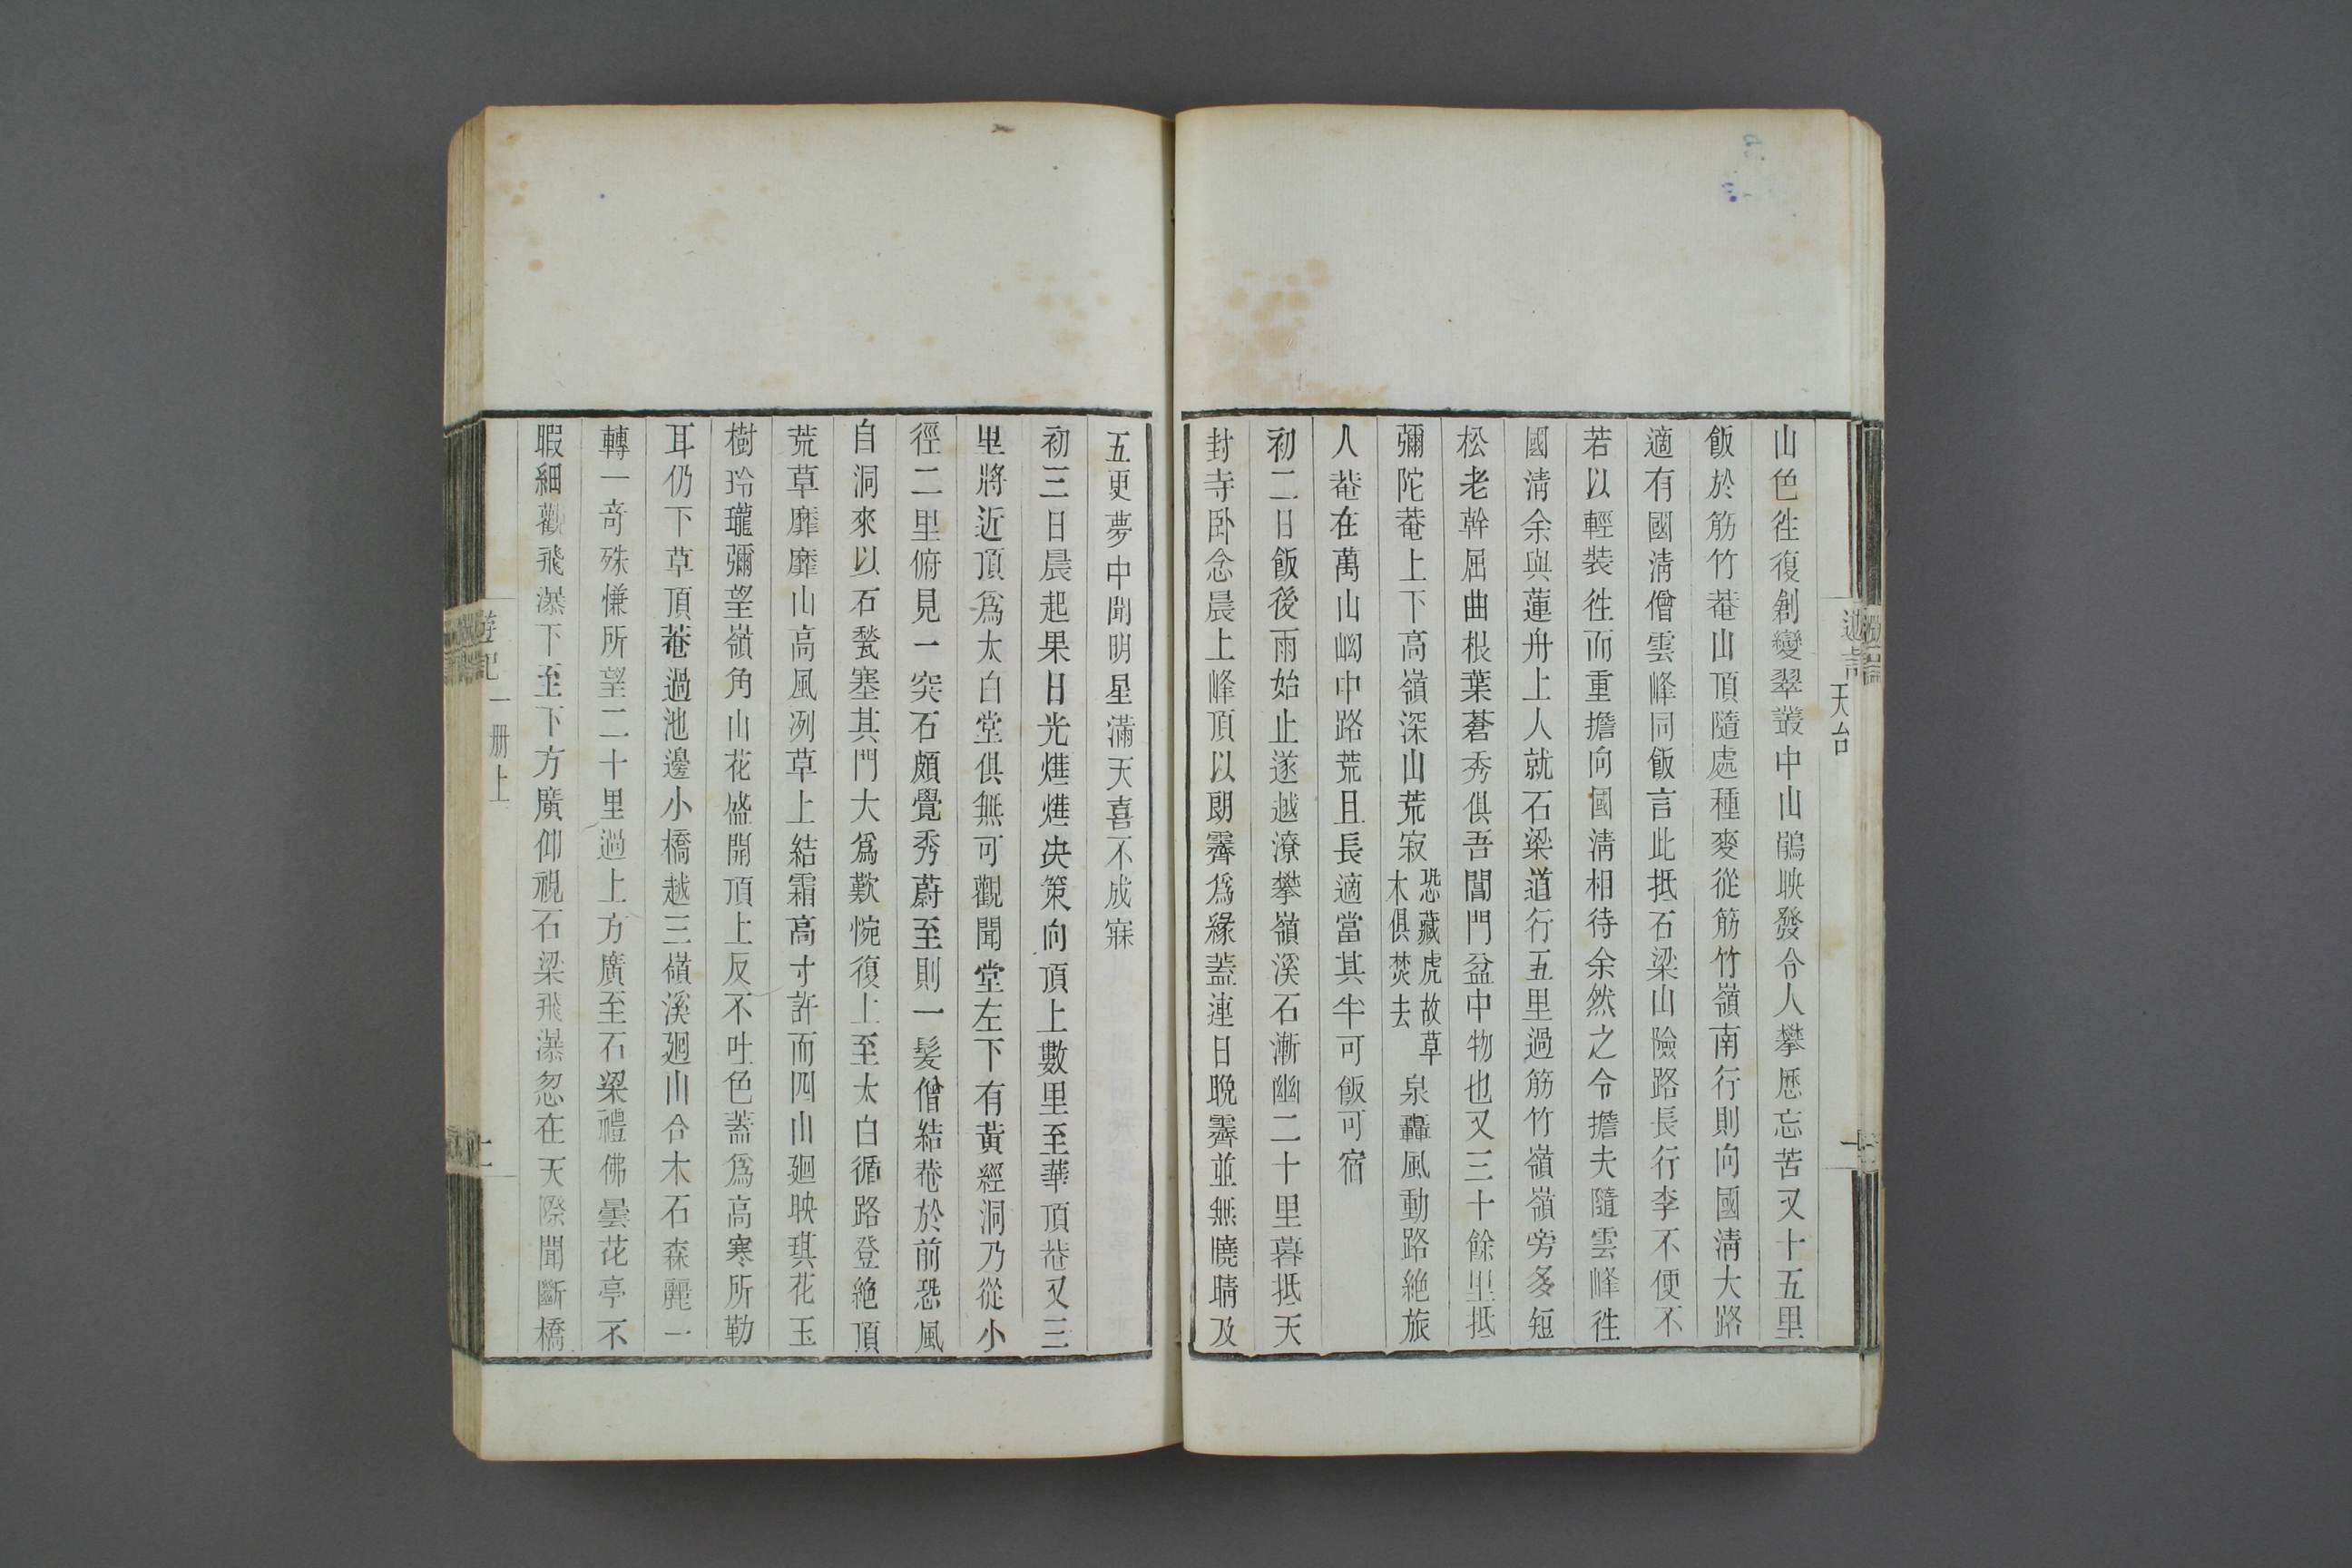 山色徃復創變翠叢中山鵑映發令人攀歷忘苦又十五里
飯於筋竹菴山頂隨處種麥從筋竹嶺南行則向國淸大路
適有國淸僧雲峰同飯言此抵石梁山險路長行李不便不
若以輕裝徃而重擔向國淸相待余然之令擔夫隨雲峰徃
國淸余與蓮舟上人就石梁道行五里過筋竹嶺嶺旁多短
松老幹屈曲根葉蒼秀俱吾閶門盆中物也又三十餘里抵
彌陀菴上下高嶺深山荒寂恐藏虎故草木俱焚去泉轟風動路絶旅
人菴在萬山㘭中路荒且長適當其半可飯可宿
初二日飯後雨始止遂越潦攀嶺溪石漸幽二十里暮抵天
封寺卧念晨上峰頂以朗霽爲緣葢連日晩霽並無曉晴及
五更夢中聞明星滿天喜不成寐
初三日晨起果日光燁燁决策向頂上數里至華頂菴又三
里將近頂爲太白堂俱無可觀聞堂左下有黃經洞乃從小
徑二里俯見一突石頗覺秀蔚至則一髮僧結菴於前恐風
自洞來以石甃塞其門大爲歎惋復上至太白循路登絶頂
荒草靡靡山高風冽草上結霜高寸許而四山廻映琪花玉
樹玲瓏彌望嶺角山花盛開頂上反不吐色蓋爲高寒所勒
耳仍下草頂菴過池邊小橋越三嶺溪廻山合木石森麗一
轉一奇殊慊所望二十里過上方廣至石梁禮佛曇花亭不
暇細觀飛瀑下至下方廣仰視石梁飛瀑忽在天際聞斷橋
天台
遊記
一册上